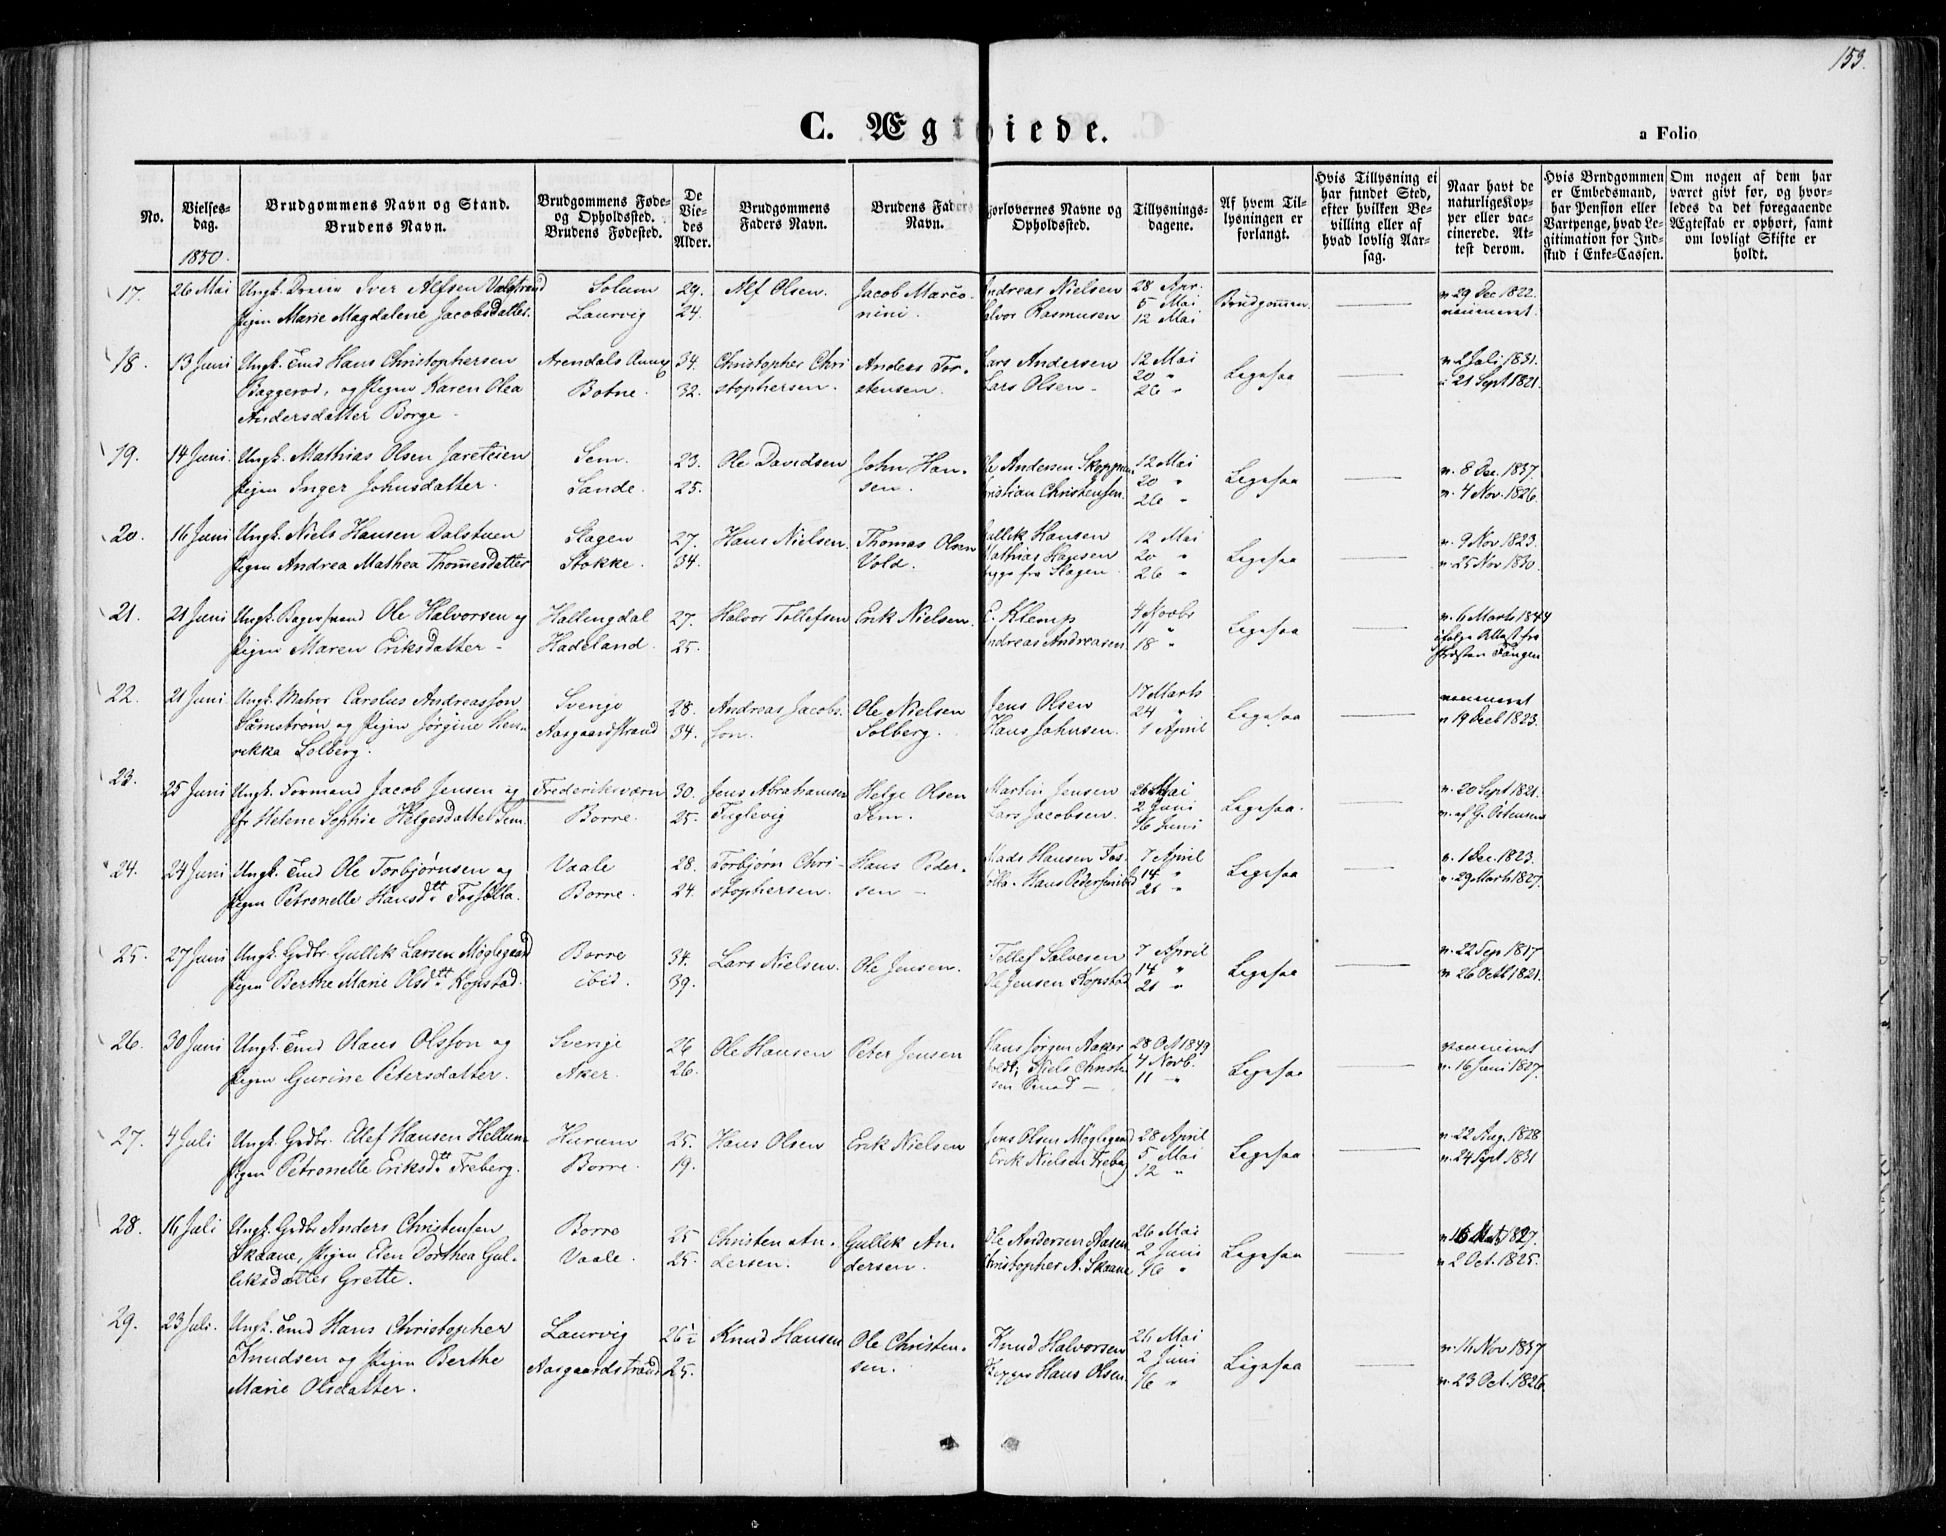 153.
C. Ægtviede.
a Folio
No.
Vielsesdag.
1850.
Brudgommens Navn og Stand.
Brudens Navn.
Brudgommens Føde-
og Opholdssted.
Brudens Fødested.
De
Vie-
des
Alder.
Brudgommens
Faders Navn.
Brudens Faders
Navn.
Forlovernes Navne og
Opholdssted.
Tillysnings-
dagene.
Af hvem Til-
lysningen er
forlangt.
Hvis Tillysning ei
har fundet Sted,
efter hvilken Be-
villing eller af
hvad lovlig Aar-
sag.
Naar havt de
naturlige Kop-
per eller vac-
cinerede. At-
test derom.
Hvis Brudgommen
er Embedsmand,
har Pension eller
Vartpenge, hvad Le-
gitimation for Ind-
stud i Enke-Cassen.
Om nogen af dem har
været givt før, og hvor-
ledes da det foregaaende
Ægteskab er ophørt, samt
om lovligt Skifte er
holdt.
17. 26 Mai Ungk. Iver Alfsen Solum 29. Alf Olsen. Jacob Marco- Andreas Nielsen 28 Apr. Brudgommen v 29 Dec 1822.
Pigen Marie Magdalene Jacobsdatter. Laurvig 24. nini. Halvor Rasmusen 5 Mai
12 Mai
18. 13 Juni Ungk. Hans Christophersen Arendals 34. Christopher Chri- Anders Tor- Lars Andersen 12 Mai Ligesaa v 2 Juli 1831.
Baggerød, og Pigen Karen Olea Botne. 32. stophersen. stensen. Lars Olsen 20 " v 21 Sept 1821.
Andersdatter Borge 26 "
19. 14 Juni. Ungk. Mathias Olsen Jareteien Sem. 23. Ole Davidsen John Han- Andersen 12 Mai Ligesaa v. 8 Dec. 1837
Pigen Inger Johnsdatter. Sande. 25. sen. Christian Christensen. 20 " v. 4 Nov. 1826.
26 "
20. 16 Juni Ungk. Niels Hansen Dalstuen Slagen 27. Hans Nielsen. Thomas Olsen Gullik Hansen 12 Mai Ligesaa v. 9 Nov. 1823.
Pigen Andrea Mathea Thomesdatter Stokke. 34. Vold. Mathias Hansen 20 " v. 25 Nov 1830.
begge fra Slagen. 26 "
21. 21 Juni Ungk. Ole Halvorsen og Hallingdal 27. Halvor Tollefsen Erik Nielsen. E. Klemp 4 Novbr Ligesaa v. 6 Marts 1844
Pigen Maren Eriksdatter Hadeland. 25. Andreas Andreasen 11 " ifølge Attest fra
18 " Præsten Fangen
22. 21 Juni Ungk. Matros Carolus Andreasson Sverige 28. Andreas Jacobs- Ole Nielsen Jens Olsen 17 Marts Ligesaa vaccineret
og Pigen Jørgine Hen- Aasgaardstrand 34. son. Solberg. Hans Johnsen. 24 " v 19 Decb 1823.
rikka Solberg. 1 April
23. 25 Juni Ungk. Formand Jacob Jensen og Frederiksværn 30. Jens Abrahamsen Helge Olsen Martin Jensen 26 Mai Ligesaa. v. 20 Sept 1821.
Helene Sophie Helgesdatter Sem. Borre. 25. Fuglevig Sem. Lars Jacobsen. 2 Juni v. af G. Ostensen
16 Juni
24. 24 Juni Ungk. Ole Torbjørnsen og Vaale 28. Torbjørn Chri- Hans Peder- Mads Hansen Fos- 7 April Ligesaa v. 1 Dec. 1823.
Pigen Petronelle Hansdtt Fossolta. Borre. 24. stophersen. sen 14 " v. 29 Marts 1827.
21 "
25. 27 Juni Ungk. Grdbr. Gullik Larsen Møglegaard Borre 34. Lars Nielsen. Ole Jensen. Tellef Salvesen 7 April Ligesaa v. 22 Sep 1817
Pigen Berthe Marie Olsdtt Kopstad. Ibid. 39. Ole Jensen Kopstad 14 " v. 26 Octb 1821.
21 "
26. 30 Juni Ungk. Olaus Olsson og Sverige 26 Ole Hansen Peter Jensen Hans Jørgen 28 Oct 1849 Ligesaa vaccineret
Pigen Gurine Petersdatter. Aker. 26. Niels Christen- 4 Novb. v. 16 Juni 1827.
sen 11 "
27. 4 Juli Ungk. Grdbr. Elef Hansen Hellum Hurum 25. Hans Olsen Erik Nielsen Jens Olsen Møglegaard 28 April Ligesaa v. 22 Aug. 1828
Pigen Petronelle Eriksdtt Freberg. Borre. 19. Erik Nielsen Freberg 5 Mai v. 24 Sept 1831
12 "
28. 16 Juli Ungk. Grdbr Anders Christensen Borre 25 Christen An- Gullik An- Ole Andersen Aasen 26 Mai Ligesaa v 16 1827.
Skaane, Pigen Elen Dorthea Gul- Vaale. 25. dersen. dersen. Christopher A. Skaane 2 Juni v 2 Oct. 1825.
liksdatter Grette. 16 "
29. 23 Juli. Ungk. Hans Christopher Laurvig 26½ Knud Hansen Ole Christen- Knud Halvorsen 26 Mai Ligesaa v. 14 Nov 1837
Knudsen og Pigen Berthe Aasgaardstrand 25. sen. Hans Olsen. 2 Juni v. 23 Oct. 1826.
Marie Olsdatter. 16 "